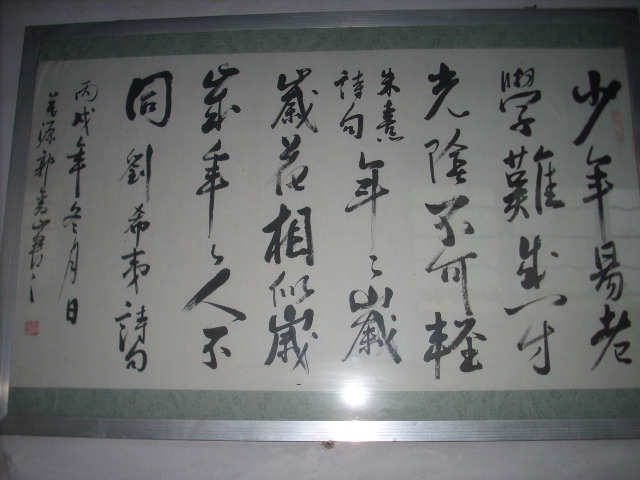 少年易老
學難成一寸
光陰不可輕
朱熹
詩句
年〻歲
歲花相似歲
歲年〻人不
同劉希夷詩句
丙戌年冬月日
源郭